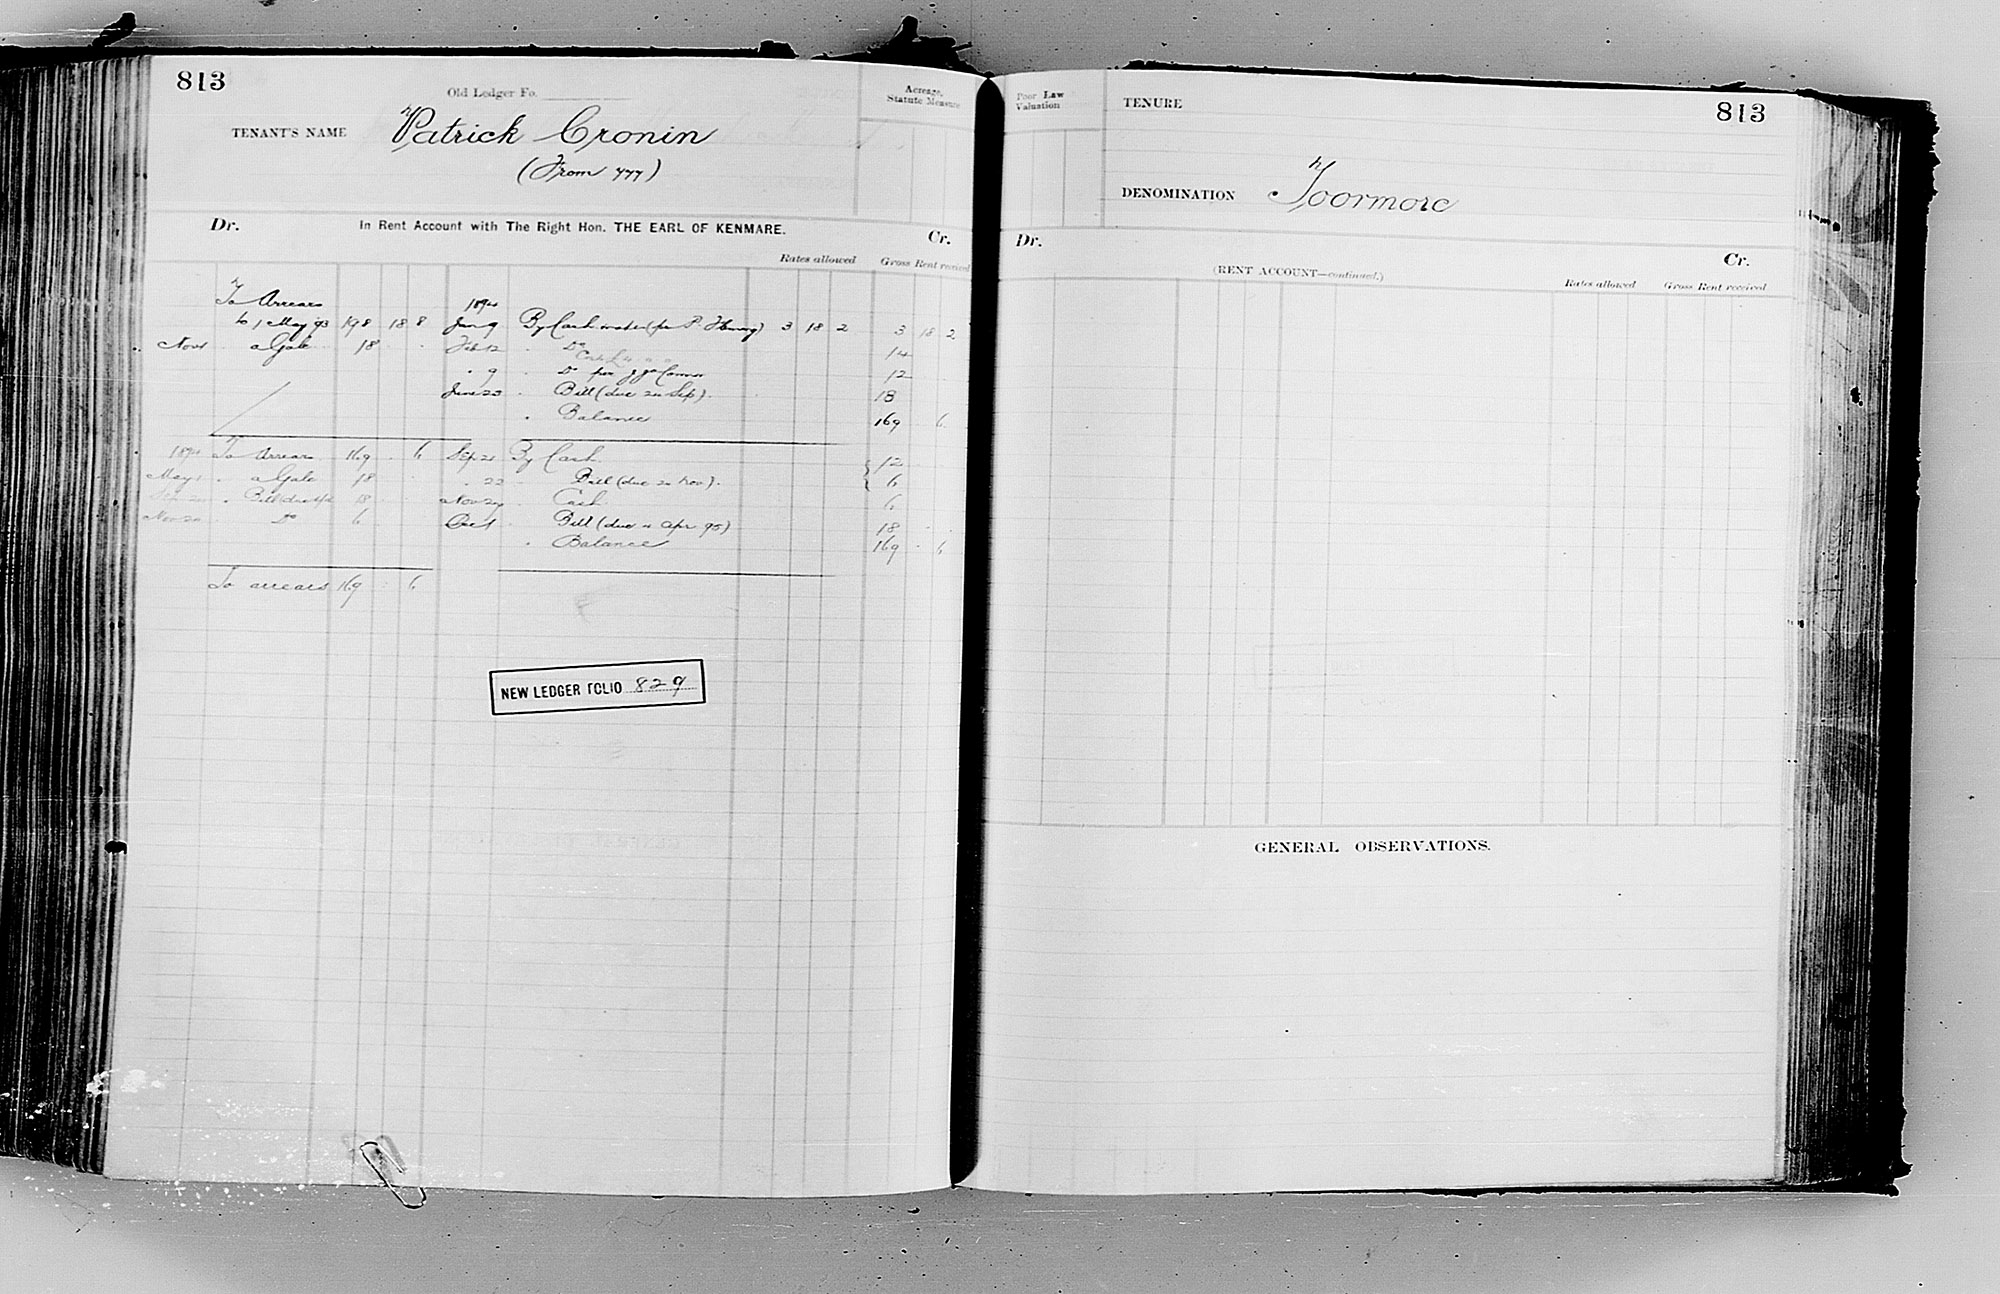 813
Old Ledger Fo.
Acreage, Statute Measure
TENANT'S NAME Patrick Cronin
(From 777)
Dr. In Rent Account with The Right Hon. THE EARL OF KENMARE. Cr.
Rates allowed Gross Rent received
To Arrears 1894
to 1 May 93 198 18 8 Jan 9 By Cash (per P. ) 3 18 2 3 18 2
Nov 1 a Gale 18 Feb 12 Do 14
9 Do per J J O'Connor 12
June 23 Bill (due 24 Sep) 18
Balance 169 6
1894 To Arrears 169 6 Sep 21 By Cash 12
May 1 a Gale 18 22 Bill (due 20 Nov) 6
Bill 18 Nov 24 Cash 6
Nov 20 Do 6 Dec 1 Bill (due 4 Apr 95) 18
Balance 169 6
To arrears 169 6
NEW LEDGER FOLIO 829
Poor Law Valuation
TENURE
813
DENOMINATION Toormore
Dr. Cr.
(RENT ACCOUNT—continued.)
Rates allowed Gross Rent received
GENERAL OBSERVATIONS.